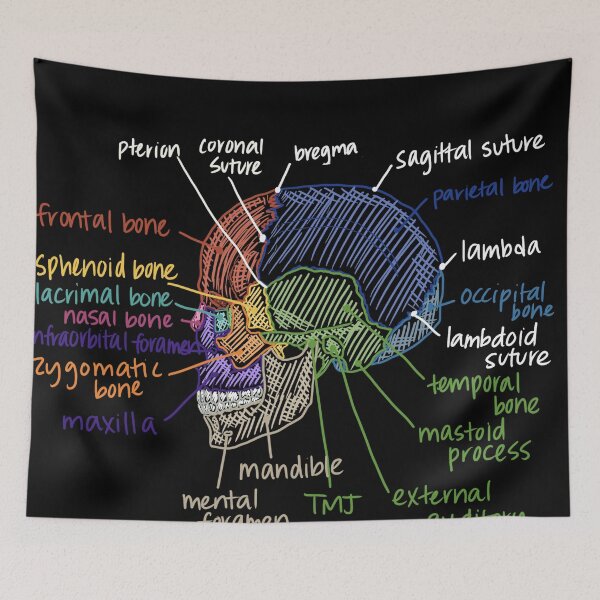 pterion
coronal
suture
bregma
sagittal suture
frontal bone
parietal bone
sphenoid bone
lambda
lacrimal bone
occipital
bone
nasal bone
lambdoid
suture
zygomatic
bone
temporal
bone
maxilla
mastoid
process
mandible
mental
TMJ
external